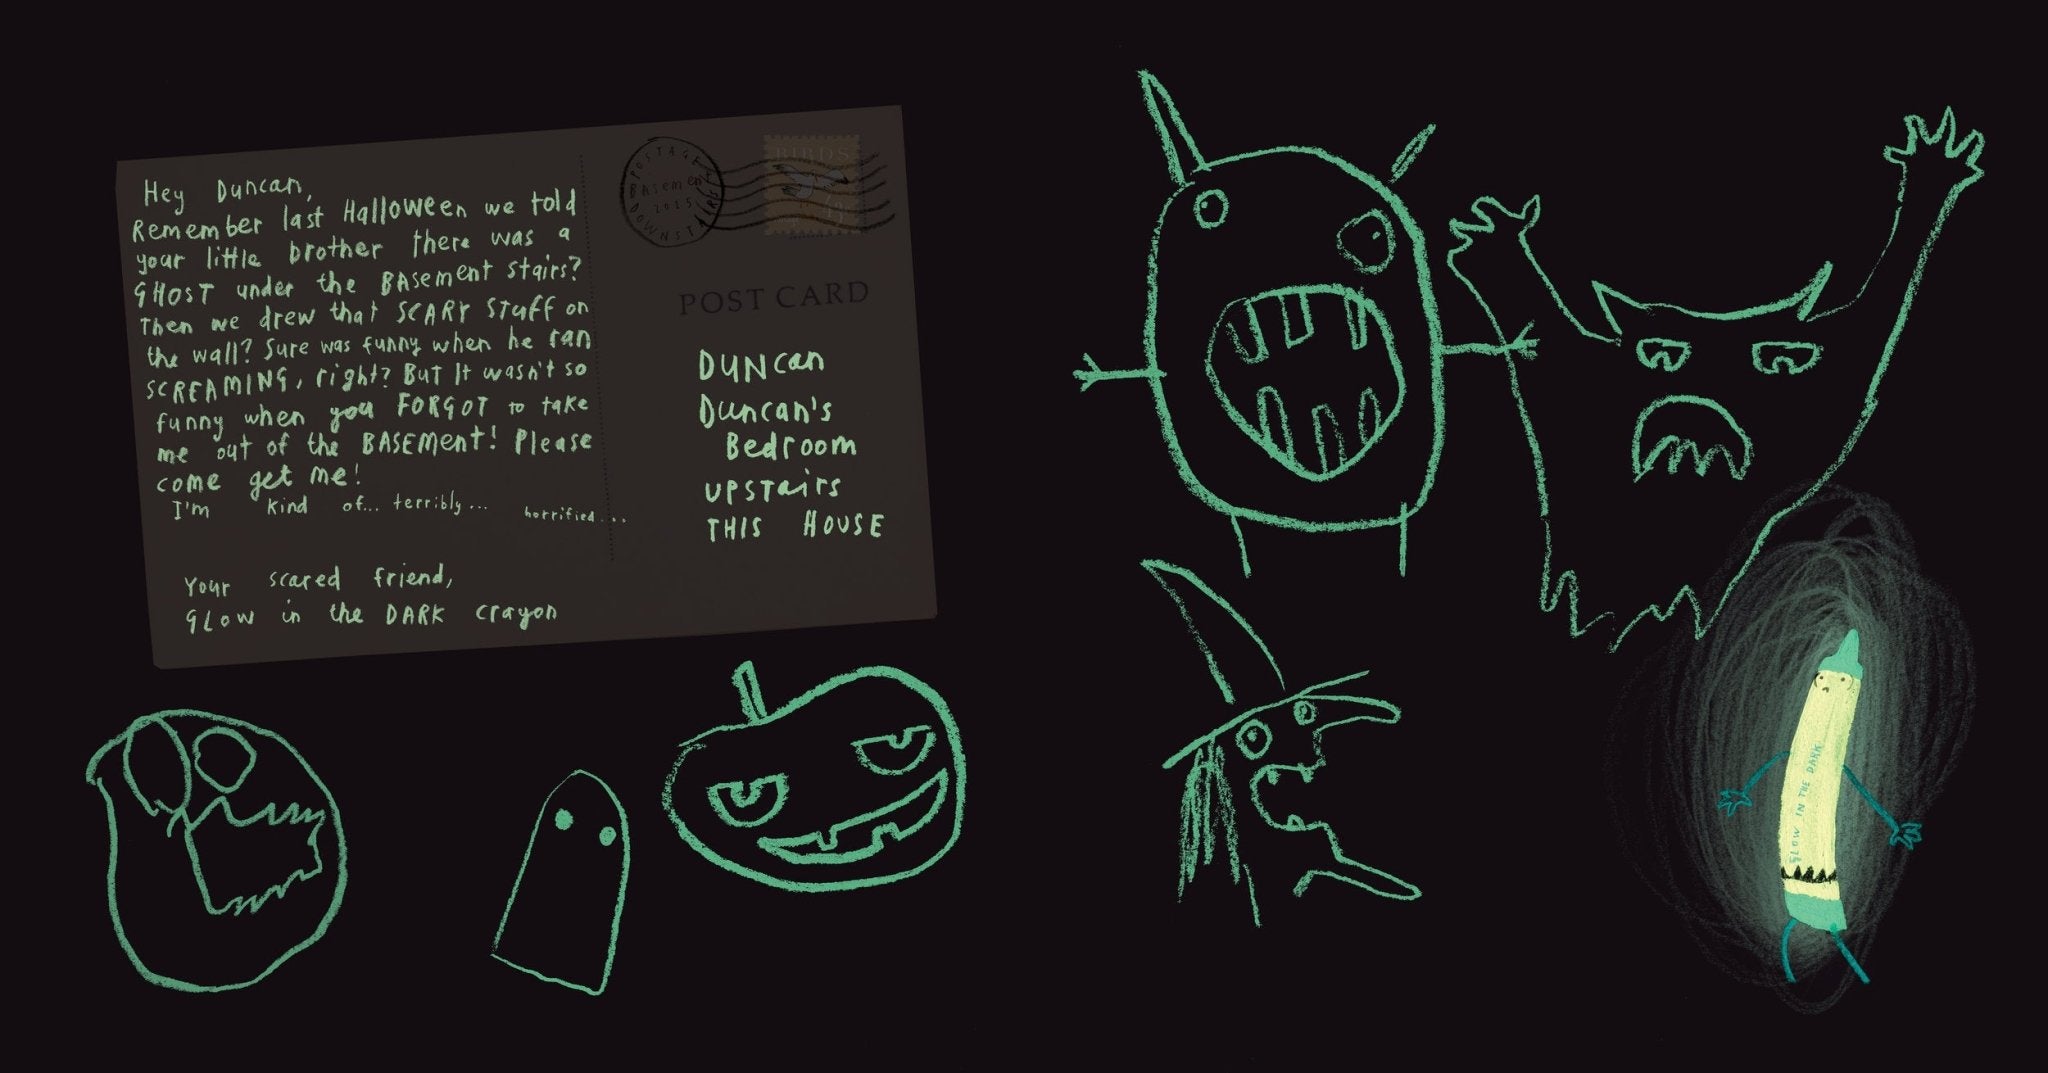 Hey Duncan,
Remember last Halloween we told
your little brother there was a
GHOST under the BASEment stairs?
Then we drew that SCARY Stuff on
the wall? Sure was funny when he ran
SCREAMING, right? BUT It wasn't so
funny when you FORGOT to take
me out of the BASEMENT! Please
come get me!
I'm kind of... terribly... horrified...
Your scared friend,
GLOW in the DARK crayon
POSTAGE
Basement
2015
DOWNSTAIRS
BIRDS
POST CARD
DUNCan
Duncan's
Bedroom
upstairs
THIS HOUSE
GLOW IN THE DARK